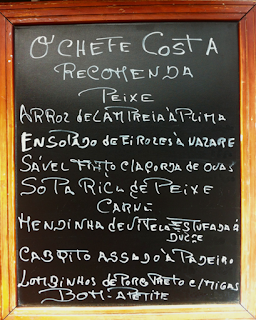 O' CHEFE COSTA
RECOMENDA
PEIXE
ARROZ de LAMPREIA À P.LIMA
ENSOPADO de EIROZES À NAZARÉ
SÁVEL FRITO C/AÇORDA de OVAS
SOPA RICA de PEIXE
CARNE
MENDINHA de VITELA ESTUFADA á
DUCRE
CABRITO ASSADO À PADEIRO
LOMBINHOS de PORC PRETO C/MIGAS
BOM-APETITE